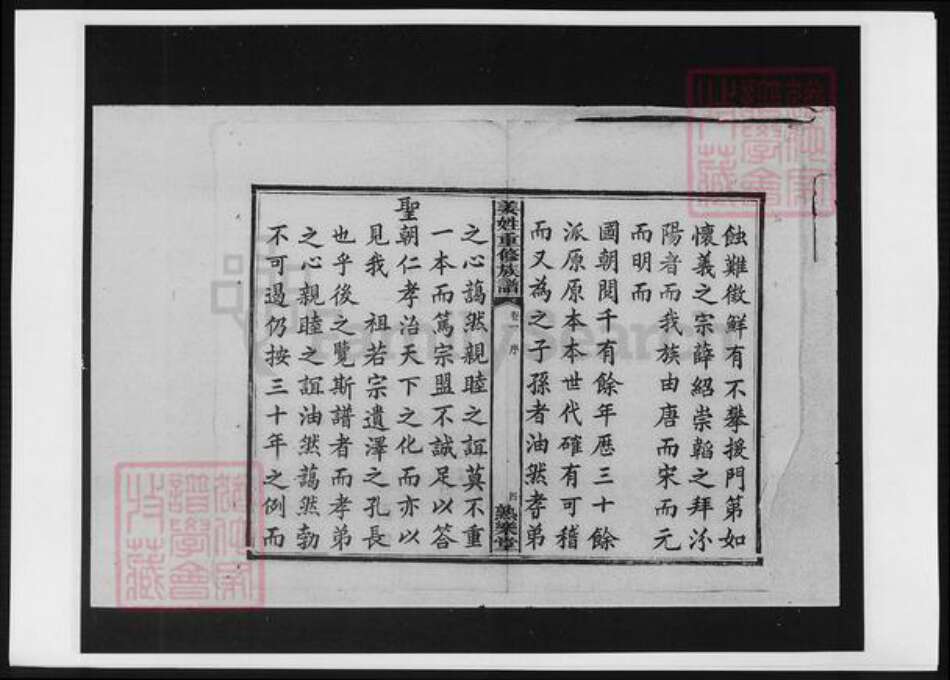 蝕難徵鮮有不攀援門第如
懷義之宗薛紹崇韜之拜汾
陽者而我族由唐而宋而元
而明而
國朝閱千有餘年歷三十餘
派原原本本世代確有可稽
而又為之子孫者油然孝弟
姜姓重修族譜
卷 序
四
熟樂堂
之心藹然親睦之誼莫不重
一本而篤宗盟不誠足以答
聖朝仁孝治天下之化而亦以
見我 祖若宗遺澤之孔長
也乎後之覽斯譜者而孝弟
之心親睦之誼油然藹然勃
不可遏仍按三十年之例而
FamilySearch